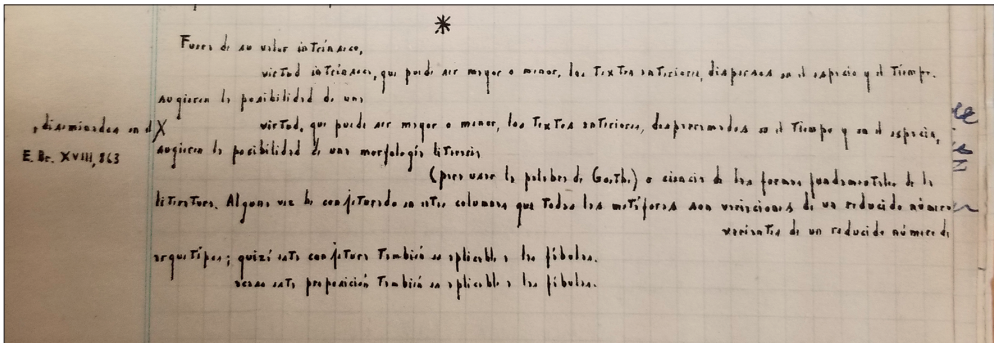 *
Fuera de su valor intrínseco,
virtud intrínseca, que puede ser mayor o menor, los textos anteriores, dispersos en el espacio y el tiempo.
sugieren la posibilidad de una
, diseminados en el X virtud, que puede ser mayor o menor, los textos anteriores, desparramados en el tiempo y en el espacio,
E. Br. XVIII, 863 sugieren la posibilidad de una morfología literaria
(para usar la palabra de Goethe) o ciencia de las formas fundamentales de la
literatura. Alguna vez he conjeturado en estas columnas que todas las metáforas son variaciones de un reducido número
variantes de un reducido número de
arquetipos; quizá esta conjetura también es aplicable a las fábulas.
acaso esta proposición también es aplicable a las fábulas.